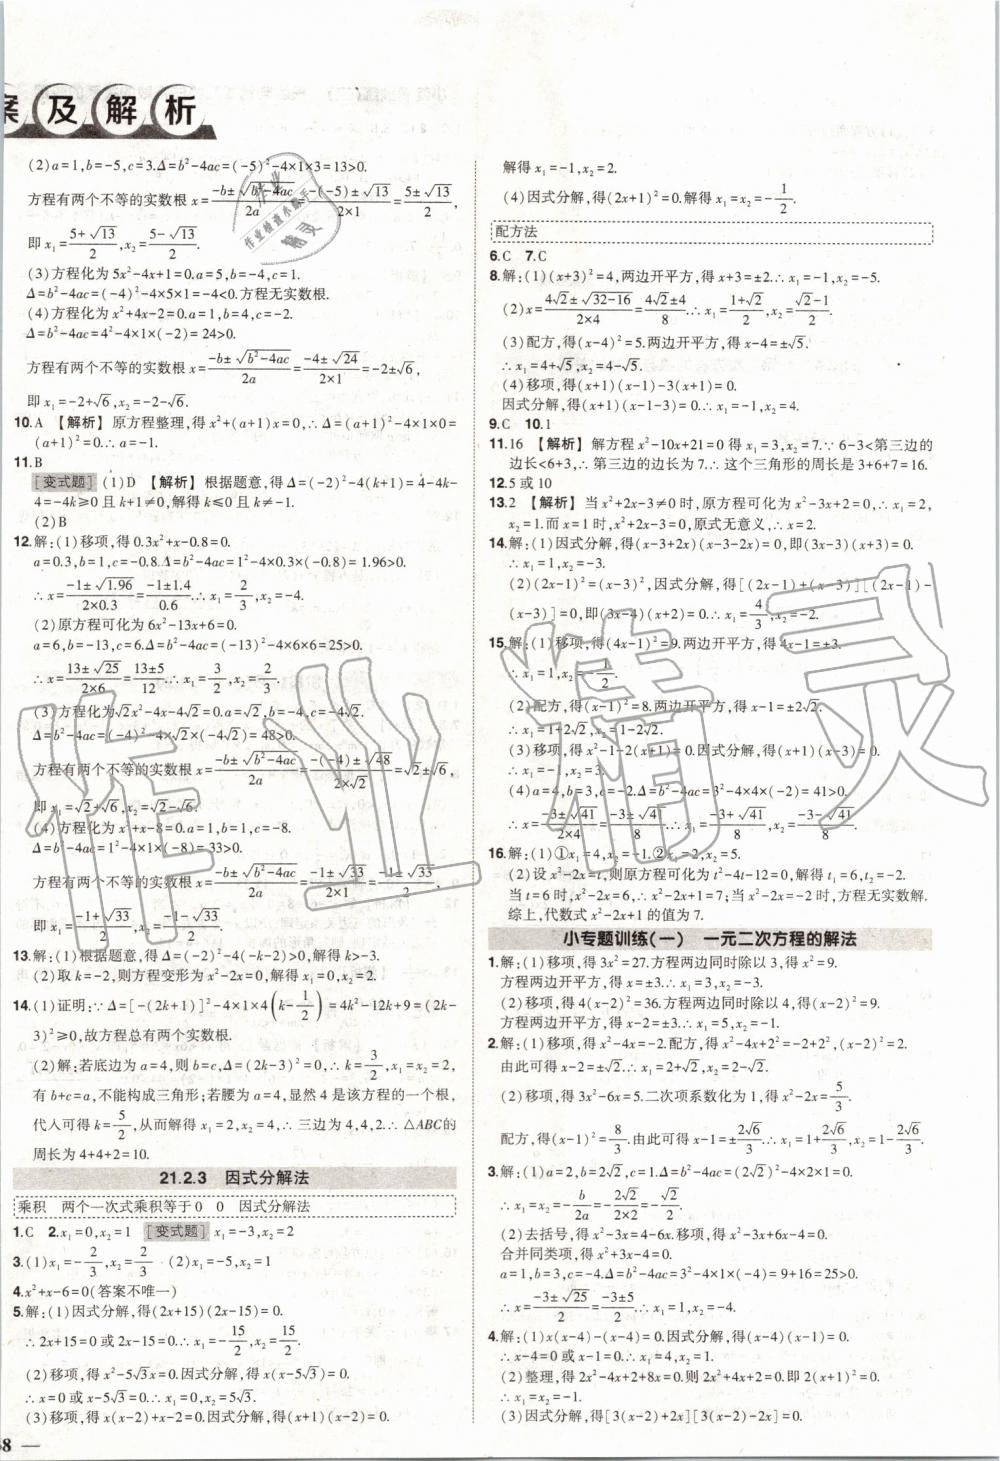 案及解析
(2)a=1,b=-5,c=3.Δ=b²-4ac=(-5)²-4×1×3=13>0.
方程有两个不等的实数根 x=(-b±√(b²-4ac))/(2a)=(-(-5)±√13)/(2×1)=(5±√13)/2,
即 x₁=(5+√13)/2,x₂=(5-√13)/2.
(3)方程化为 5x²-4x+1=0.a=5,b=-4,c=1.
Δ=b²-4ac=(-4)²-4×5×1=-4<0.方程无实数根.
(4)方程化为 x²+4x-2=0.a=1,b=4,c=-2.
Δ=b²-4ac=4²-4×1×(-2)=24>0.
方程有两个不等的实数根 x=(-b±√(b²-4ac))/(2a)=(-4±√24)/(2×1)=-2±√6,
即 x₁=-2+√6,x₂=-2-√6.
10.A 【解析】原方程整理,得 x²+(a+1)x=0,∴Δ=(a+1)²-4×1×0=
(a+1)²=0.∴a=-1.
11.B
[变式题] (1)D 【解析】根据题意,得 Δ=(-2)²-4(k+1)=4-4k-
4=-4k≥0 且 k+1≠0,解得 k≤0 且 k≠-1.
(2)B
12.解:(1)移项,得 0.3x²+x-0.8=0.
a=0.3,b=1,c=-0.8.Δ=b²-4ac=1²-4×0.3×(-0.8)=1.96>0.
∴x=(-1±√1.96)/(2×0.3)=(-1±1.4)/0.6.∴x₁=2/3,x₂=-4.
(2)原方程可化为 6x²-13x+6=0.
a=6,b=-13,c=6.Δ=b²-4ac=(-13)²-4×6×6=25>0.
∴x=(13±√25)/(2×6)=(13±5)/12.∴x₁=3/2,x₂=2/3.
(3)方程化为√2x²-4x-4√2=0.a=√2,b=-4,c=-4√2.
Δ=b²-4ac=(-4)²-4×√2×(-4√2)=48>0.
方程有两个不等的实数根 x=(-b±√(b²-4ac))/(2a)=(-(-4)±√48)/(2×√2)=√2±√6,
即 x₁=√2+√6,x₂=√2-√6.
(4)方程化为 x²+x-8=0.a=1,b=1,c=-8.
Δ=b²-4ac=1²-4×1×(-8)=33>0.
方程有两个不等的实数根 x=(-b±√(b²-4ac))/(2a)=(-1±√33)/(2×1)=(-1±√33)/2,
即 x₁=(-1+√33)/2,x₂=(-1-√33)/2.
13.解:(1)根据题意,得 Δ=(-2)²-4(-k-2)>0,解得 k>-3.
(2)取 k=-2,则方程变形为 x²-2x=0,解得 x₁=0,x₂=2.
14.(1)证明:∵Δ=[-(2k+1)]²-4×1×4(k-1/2)=4k²-12k+9=(2k-
3)²≥0,故方程总有两个实数根.
(2)解:若底边为 a=4,则 b=c,Δ=(2k-3)²=0,解得 k=3/2.此时,
有 b+c=a,不能构成三角形;若腰为 a=4,显然 4 是该方程的一个根,
代入可得 k=5/2,从而解得 x₁=2,x₂=4,∴三边为 4,4,2.∴△ABC的
周长为 4+4+2=10.
21.2.3 因式分解法
乘积 两个一次式乘积等于 0 0 因式分解法
1.C 2.x₁=0,x₂=1 [变式题] x₁=-3,x₂=2
3.(1)x₁=-2/3,x₂=2/3 (2)x₁=-5,x₂=1
4.x²+x-6=0(答案不唯一)
5.解:(1)因式分解,得(2x+15)(2x-15)=0.
∴2x+15=0 或 2x-15=0.∴x₁=-15/2,x₂=15/2.
(2)移项,得 x²-5√3x=0.因式分解,得 x(x-5√3)=0.
∴x=0 或 x-5√3=0,∴x₁=0,x₂=5√3.
(3)移项,得 x(x-2)+x-2=0.因式分解,得(x+1)(x-2)=0.
解得 x₁=-1,x₂=2.
(4)因式分解,得(2x+1)²=0.解得 x₁=x₂=-1/2.
配方法
6.C 7.C
8.解:(1)(x+3)²=4,两边开平方,得 x+3=±2.∴x₁=-1,x₂=-5.
(2)x=(4√2±√(32-16))/(2×4)=(4√2±4)/8.∴x₁=(1+√2)/2,x₂=(√2-1)/2.
(3)配方,得(x-4)²=5.两边开平方,得 x-4=±√5.
∴x₁=4+√5,x₂=4-√5.
(4)移项,得(x+1)(x-1)-3(x+1)=0.
因式分解,得(x+1)(x-1-3)=0.∴x₁=-1,x₂=4.
9.C 10.1
11.16 【解析】解方程 x²-10x+21=0 得 x₁=3,x₂=7.∵6-3<第三边的
边长<6+3,∴第三边的边长为 7.∴这个三角形的周长是 3+6+7=16.
12.5 或 10
13.2 【解析】当 x²+2x-3≠0 时,原方程可化为 x²-3x+2=0,x₁=2,
x₂=1.而 x=1 时,x²+2x-3=0,原式无意义,∴x=2.
14.解:(1)因式分解,得(x-3+2x)(x-3-2x)=0,即(3x-3)(x+3)=0,
∴x₁=1,x₂=-3.
(2)(2x-1)²=(x-3)²,因式分解,得[(2x-1)+(x-3)][(2x-1)-
(x-3)]=0,即(3x-4)(x+2)=0,∴x₁=4/3,x₂=-2.
15.解:(1)移项,得(4x-1)²=9.两边开平方,得 4x-1=±3.
∴x₁=1,x₂=-1/2.
(2)配方,得(x-1)²=8.两边开平方,得 x-1=±2√2.
∴x₁=1+2√2,x₂=1-2√2.
(3)移项,得 x²-1-2(x+1)=0.因式分解,得(x+1)(x-3)=0.
∴x₁=-1,x₂=3.
(4)a=4,b=3,c=-2.Δ=b²-4ac=3²-4×4×(-2)=41>0.
∴x=(-3±√41)/(2×4)=(-3±√41)/8.∴x₁=(-3+√41)/8,x₂=(-3-√41)/8.
16.解:(1)①x₁=4,x₂=-1.②x₁=2,x₂=5.
(2)设 x²-2x=t,则原方程可化为 t²-4t-12=0,解得 t₁=6,t₂=-2.
当 t=6 时,x²-2x=6,∴x²-2x+1=7;当 t=-2 时,方程无实数解.
综上,代数式 x²-2x+1 的值为 7.
小专题训练(一) 一元二次方程的解法
1.解:(1)移项,得 3x²=27.方程两边同时除以 3,得 x²=9.
方程两边开平方,得 x=±3.∴x₁=3,x₂=-3.
(2)移项,得 4(x-2)²=36.方程两边同时除以 4,得(x-2)²=9.
方程两边开平方,得 x-2=±3.∴x₁=5,x₂=-1.
2.解:(1)移项,得 x²-4x=-2.配方,得 x²-4x+2²=-2+2²,(x-2)²=2.
由此可得 x-2=±√2.∴x₁=2+√2,x₂=2-√2.
(2)移项,得 3x²-6x=5.二次项系数化为 1,得 x²-2x=5/3.
配方,得(x-1)²=8/3.由此可得 x-1=±2√6/3.∴x₁=1+2√6/3,x₂=1-2√6/3.
3.解:(1)a=2,b=-2√2,c=1.Δ=b²-4ac=(-2√2)²-4×2×1=0.
∴x₁=x₂=-b/(2a)=-(-2√2)/(2×2)=√2/2.
(2)去括号,得 x²-3x=4-6x.移项,得 x²-3x+6x-4=0.
合并同类项,得 x²+3x-4=0.
a=1,b=3,c=-4.Δ=b²-4ac=3²-4×1×(-4)=9+16=25>0.
∴x=(-3±√25)/2=(-3±5)/2.∴x₁=1,x₂=-4.
4.解:(1)x(x-4)-(x-4)=0.因式分解,得(x-4)(x-1)=0.
∴x-4=0 或 x-1=0.∴x₁=4,x₂=1.
(2)整理,得 2x²+4x=0.则 2x(x+2)=0.∴x₁=0,x₂=-2.
(3)因式分解,得[3(x-2)+2x][3(x-2)-2x]=0.